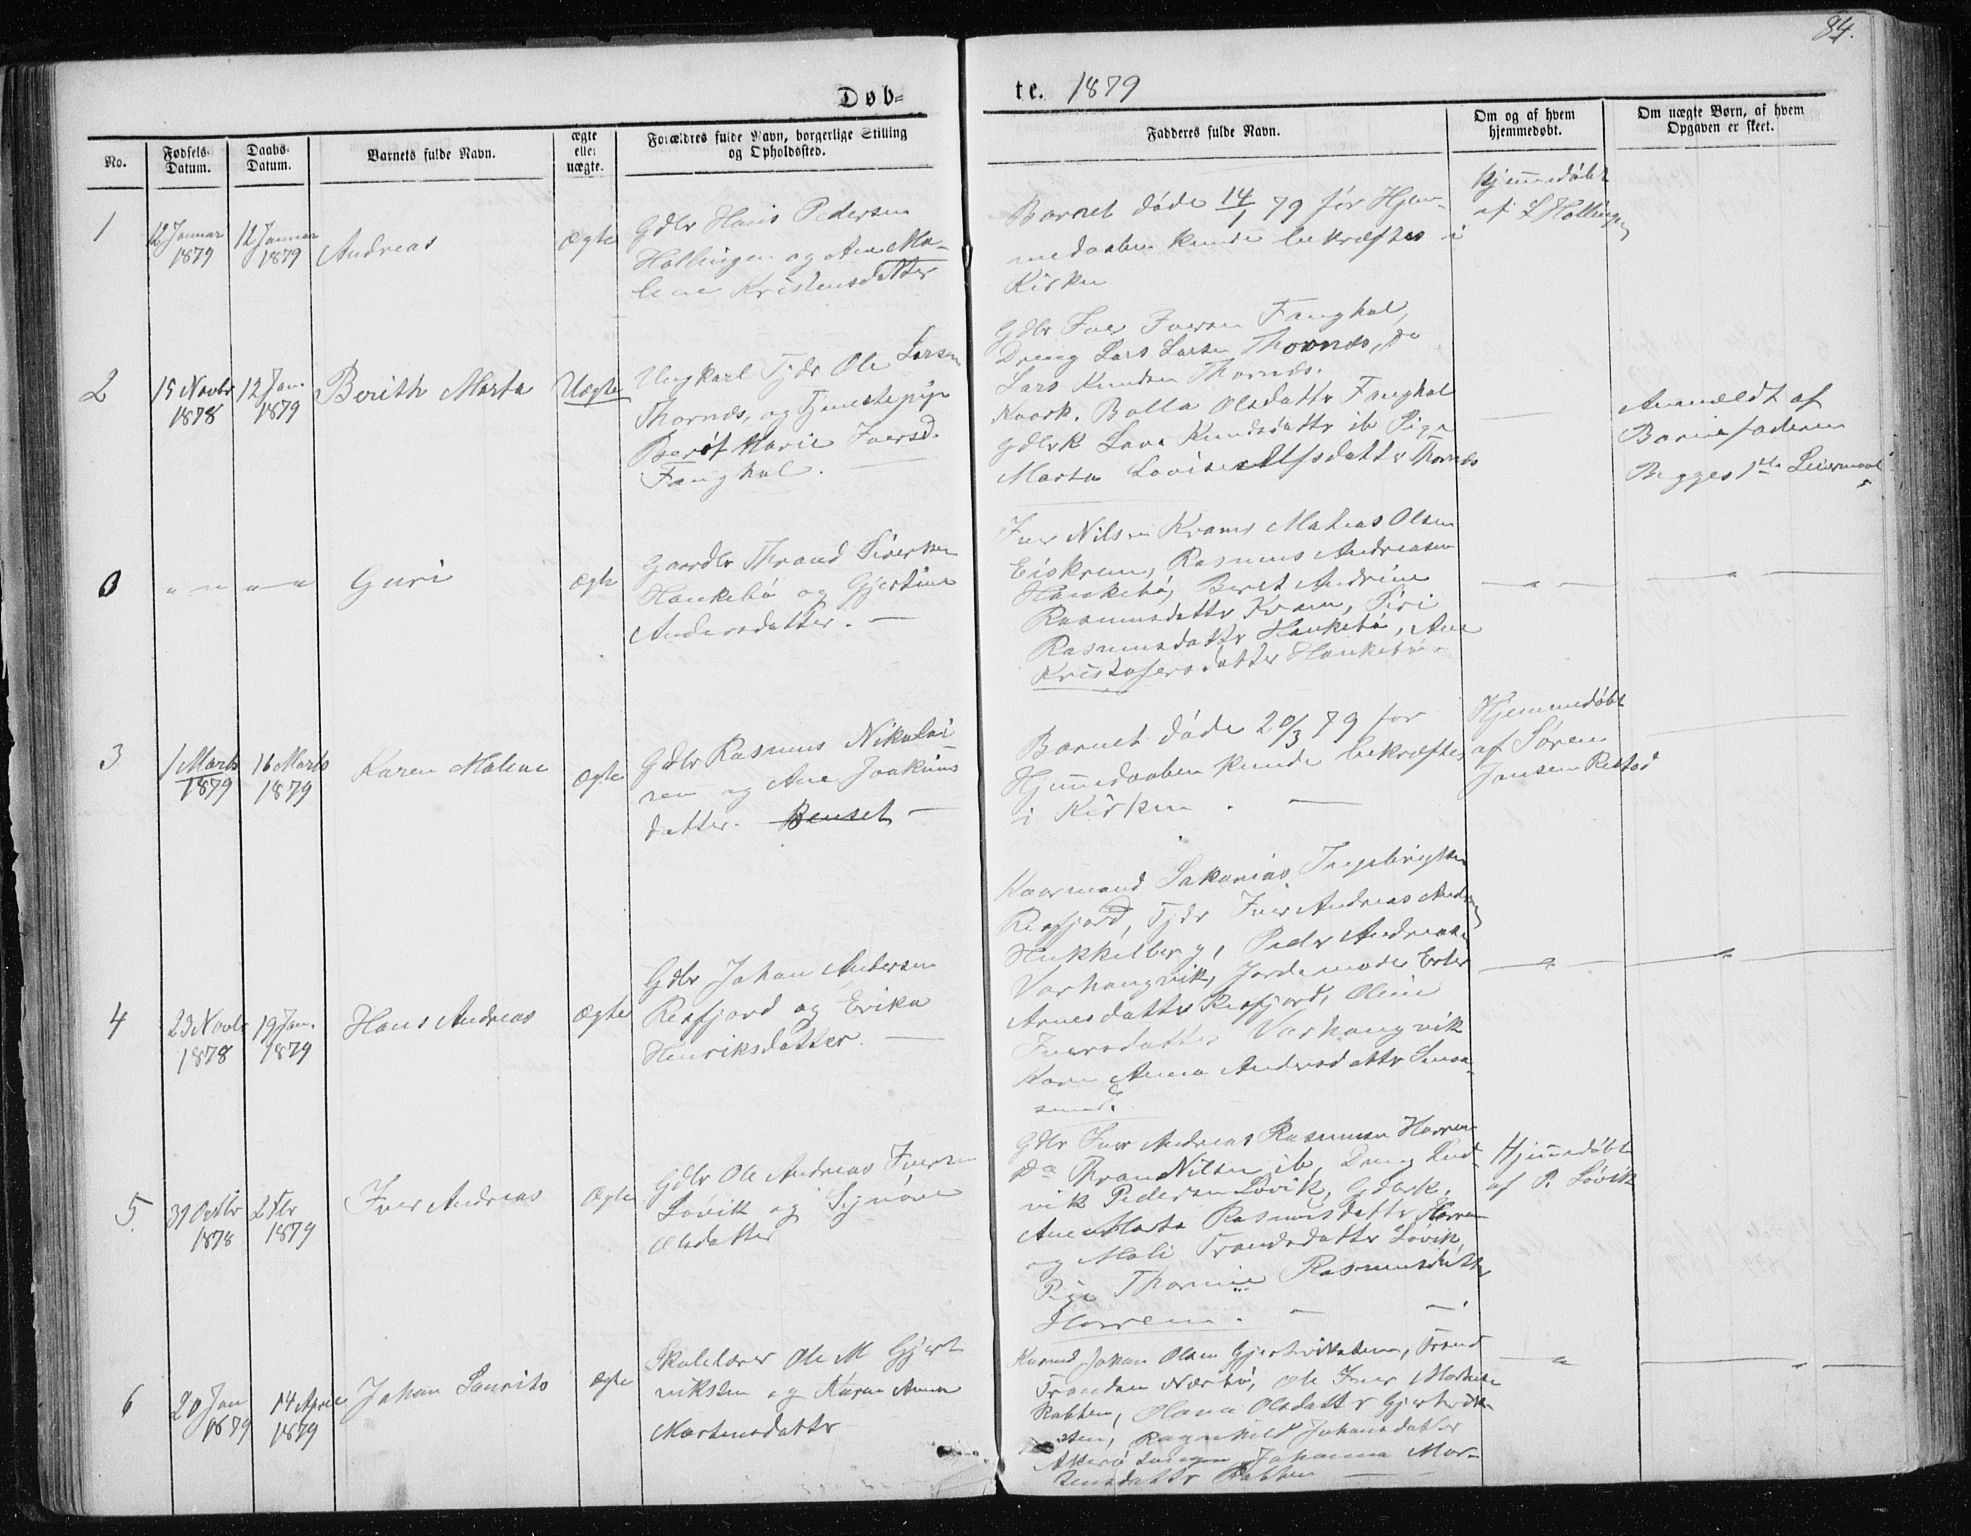 84.
Døb-
te. 1879
No.
Fødsels-
Datum.
Daabs-
Datum.
Barnets fulde Navn.
ægte
eller
uægte.
Forældres fulde Navn, borgerlige Stilling
og Opholdssted.
Fadderes fulde Navn.
Om og af hvem
hjemmedøbt.
Om uægte Børn, af hvem
Opgaven er skeet.
1
12 Januar
1879
12 Januar
1879
Andreas
Ægte
Gdbr Hans Pedersen
Hollingen og Ane Ma-
lene Kristensdatter
Barnet døde 14/1 79 før Hjem-
medaaben kunde bekræftes i
Kirken
Hjemmedøbt
af L Hollingen
2
15 Novbr
1878
12 Jan.
1879
Berith Marta
Uægte
Ungkarl Tjdr Ole Larsen
Thornæs, og Tjenestepige
Berit Marie Iversd.
Fanghol.
Gdbr Iver Iversen Fanghol,
Dreng Lars Larsen Thornæs, do
Lars Knudsen Thornæs.
Kaark. Balla Olsdatter Fanghol
Gdbrk Lava Knudsdatter ib Pige
Marta Lovise Ulfsdatter Thornæs
Anmeldt af
Barnefaderen
Begges 1ste Leiermaal
0
" " "
" " "
Guri
Ægte
Gaardbr Thrond Sivertsen
Haukebø og Gjertine
Andersdatter. —
Iver Nilsen Kvam, Mathias Olsen
Eiskrem, Rasmus Andreasen
Haukebø, Beret Andrine
Rasmusdatter Kvam, Siri
Rasmusdatter Haukebø, Ane
Kristofersdatter Haukebø.
3
1 Marts
1879
16 Marts
1879
Karen Malene
Ægte
Gdbr Rasmus Nikolai-
sen og Ane Joakims
datter. Bendset —
Barnet døde 20/3 79 før
Hjemmedaaben kunde bekræftes
i Kirken. —
Hjemmedøbt
af Søren
Jansen Restad
4
23 Novbr
1878
19 Jan.
1879
Hans Andreas
Ægte
Gdbr Johan Andersen
Resfjord og Erika
Henriksdatter. —
Kaarmand Sakarias Ingebrigtsen
Resfjord, Tjdr Iver Andreas
Hukkelberg, Peder Andreasen
Varhaugvik, Jordemoder
Arnesdatter Resfjord, Oline
Iversdatter Varhaugvik
Karen Anna Andersdatter
5
31 Octbr
1878
2 Fbr
1879
Iver Andreas
Ægte
Gdbr Ole Andreas Iversen
Løvik og Synøve
Olsdatter
Gdbr Iver Andreas Rasmussen Harrem
do Thron Nilsen ib, Dreng Lud-
vik Pedersen Løvik, Gdbrk.
Ane Marta Rasmusdatter Harrem
og Mali Trondsdatter Løvik,
Pige Thomine Rasmusdatter
Harrem. —
Hjemmedøbt
af P. Løvik
6
20 Jan
1879
14 April
1879
Johan Laurits
Ægte
Skolelærer Ole M Gjert
viksen og Karen Anna
Martensdatter
Johan Olsen Gjertvikstein, Trond
Trondsen Nærbø, Ole Iver Mortensen
Rabben, Olava Olsdatter Gjertvik-
sten, Ragnhild Johansdatter
Johanna Mor-
tensdatter Rabben